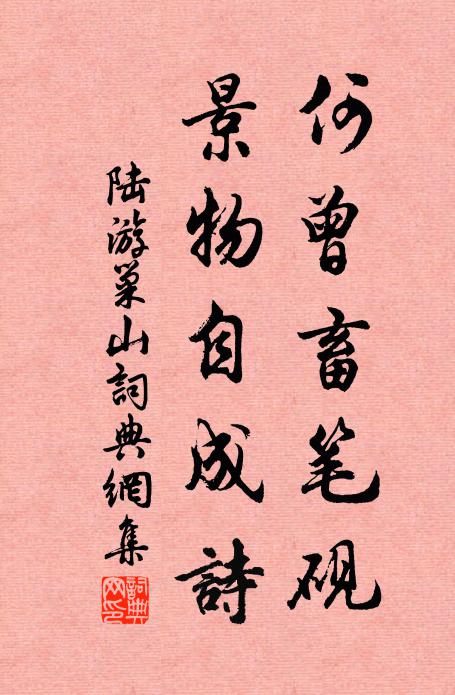 何曾畜笔砚
景物自成詩
陆游巢山詞典網集
詞典網印